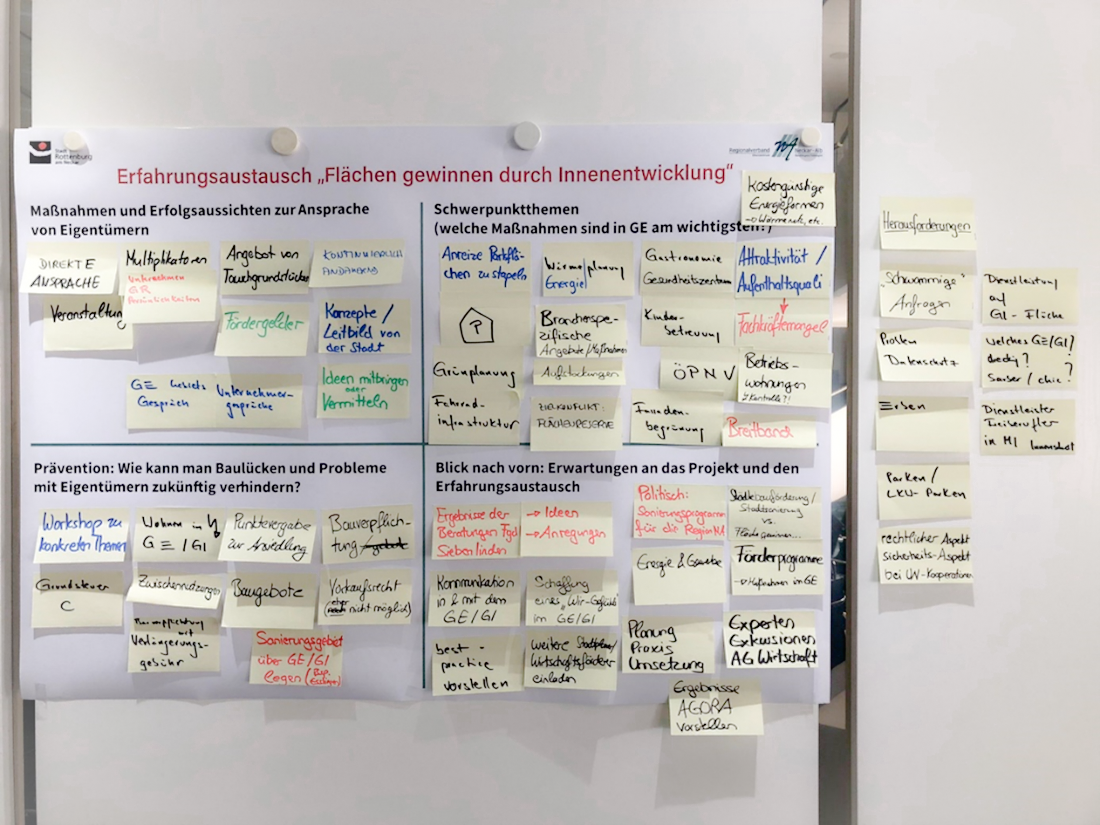 Stadt
Rottenburg
am Neckar
Regionalverband
Neckar-Alb
Erfahrungsaustausch „Flächen gewinnen durch Innenentwicklung“
Maßnahmen und Erfolgsaussichten zur Ansprache
von Eigentümern
DIREKTE
ANSPRACHE
Multiplikatoren
Unternehmen
GR
Persönlichkeiten
Angebot von
Tauschgrundstücken
KONTINUIERLICH
Veranstaltung
Fördergelder
Konzepte /
Leitbild von
der Stadt
GE
Gespräch
Unternehmer-
gespräche
Ideen mitbringen
oder
Vermitteln
Schwerpunktthemen
(welche Maßnahmen sind in GE am wichtigsten?)
Kostengünstige
Energieformen
→ Wärmenetz, etc.
Anreize Parkflä-
chen zu stapeln
Wärmeplanung
Energie
Gastronomie
Gesundheitszentrum
Attraktivität /
Aufenthaltsquali
P
Branchenspe-
zifische
Angebote/Maßnahmen
Kinder-
betreuung
Fachkräftemangel
Grünplanung
Aufstockungen
ÖPNV
Betriebs-
wohnungen
Kontrolle?!
Fahrrad-
infrastruktur
ZIELKONFLIKT:
FLÄCHENRESERVE
Fassaden-
begrünung
Breitband
Prävention: Wie kann man Baulücken und Probleme
mit Eigentümern zukünftig verhindern?
Workshop zu
konkreten Themen
Wohnen in
GE/GI
Punktevergabe
zur Ansiedlung
Bauverpflich-
tung
Grundsteuer
C
Zwischennutzungen
Baugebote
Vorkaufsrecht
(eher nicht möglich)
mit
Verlängerungs-
gebühr
Sanierungsgebiet
über GE/GI
legen
Blick nach vorn: Erwartungen an das Projekt und den
Erfahrungsaustausch
Ergebnisse der
Beratungen Fgd
Siebenlinden
→ Ideen
→ Anregungen
Politisch:
Sanierungsprogramm
für die Region NA
Städtebauförderung/
Stadtsanierung
vs.
Fläche gewinnen...
Kommunikation
in & mit dem
GE/GI
Schaffung
eines „Wir-Gefühls“
im GE/GI
Energie & Gewerbe
Förderprogramme
→ Maßnahmen im GE
best-
practice
vorstellen
weitere Stadtplaner/
Wirtschaftsförderer
einladen
Planung
Praxis
Umsetzung
Experten
Exkursionen
AG Wirtschaft
Ergebnisse
AGORA
vorstellen
Herausforderungen
„Schwammige“
Anfragen
Dienstleistung
auf
GI-Fläche
Problem
Datenschutz
welches GE/GI?
dreckig?
sauber/chic?
Erben
Dienstleister
Freiberufler
in MI
Innenstadt
Parken/
LKW-Parken
rechtlicher Aspekt
Sicherheits-Aspekt
bei UN-Kooperationen